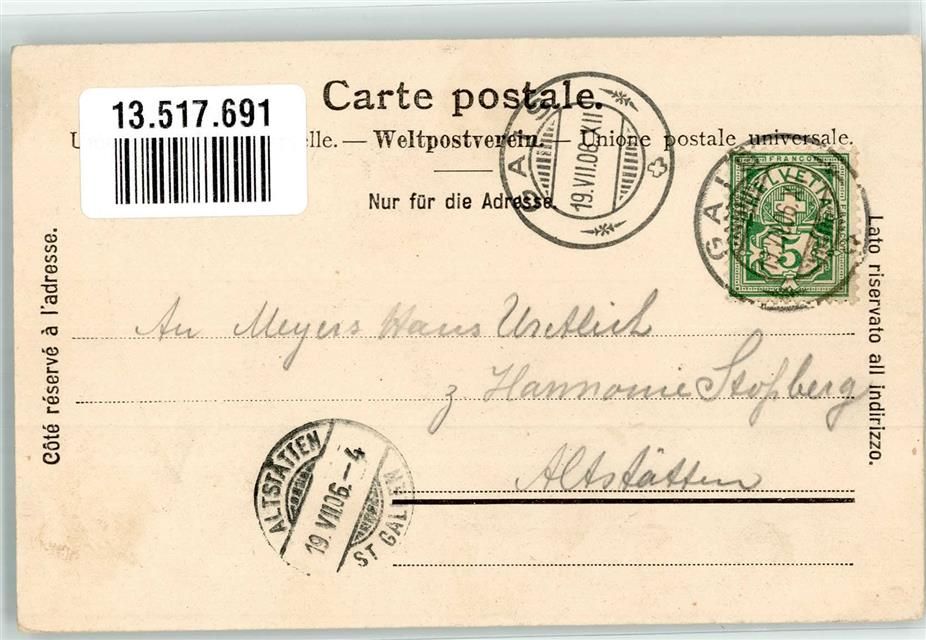 13.517.691
Carte postale.
elle. — Weltpostverein. — Unione postale universale.
Nur für die Adresse.
Côté réservé à l'adresse.
Lato riservato all indirizzo.
GAIS
19.VII.06
GAIS
FRANCO
HELVETIA
5
An Meyers Hans
z Harmonie Stoßberg
Altstätten
ALTSTÄTTEN
19.VII.06.-4
ST GALLEN